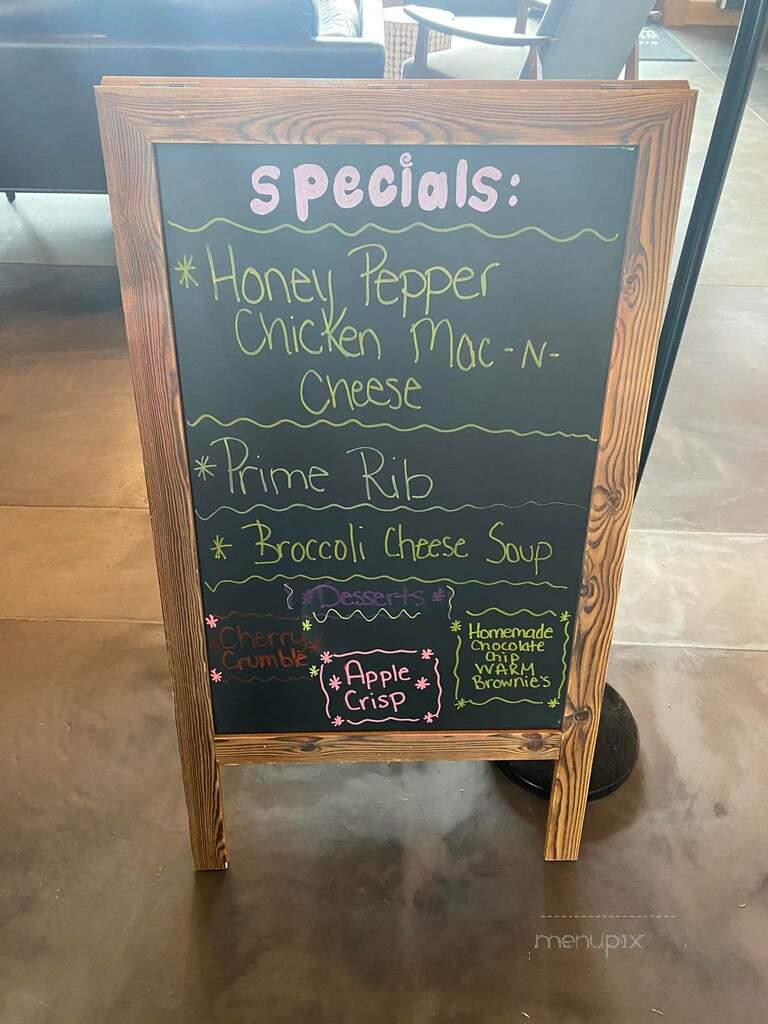 Specials:
* Honey Pepper
Chicken Mac-N-
Cheese
* Prime Rib
* Broccoli Cheese Soup
* Desserts *
Cherry
Crumble
* Apple *
Crisp
Homemade
Chocolate
Chip
WARM
Brownie's
menupix